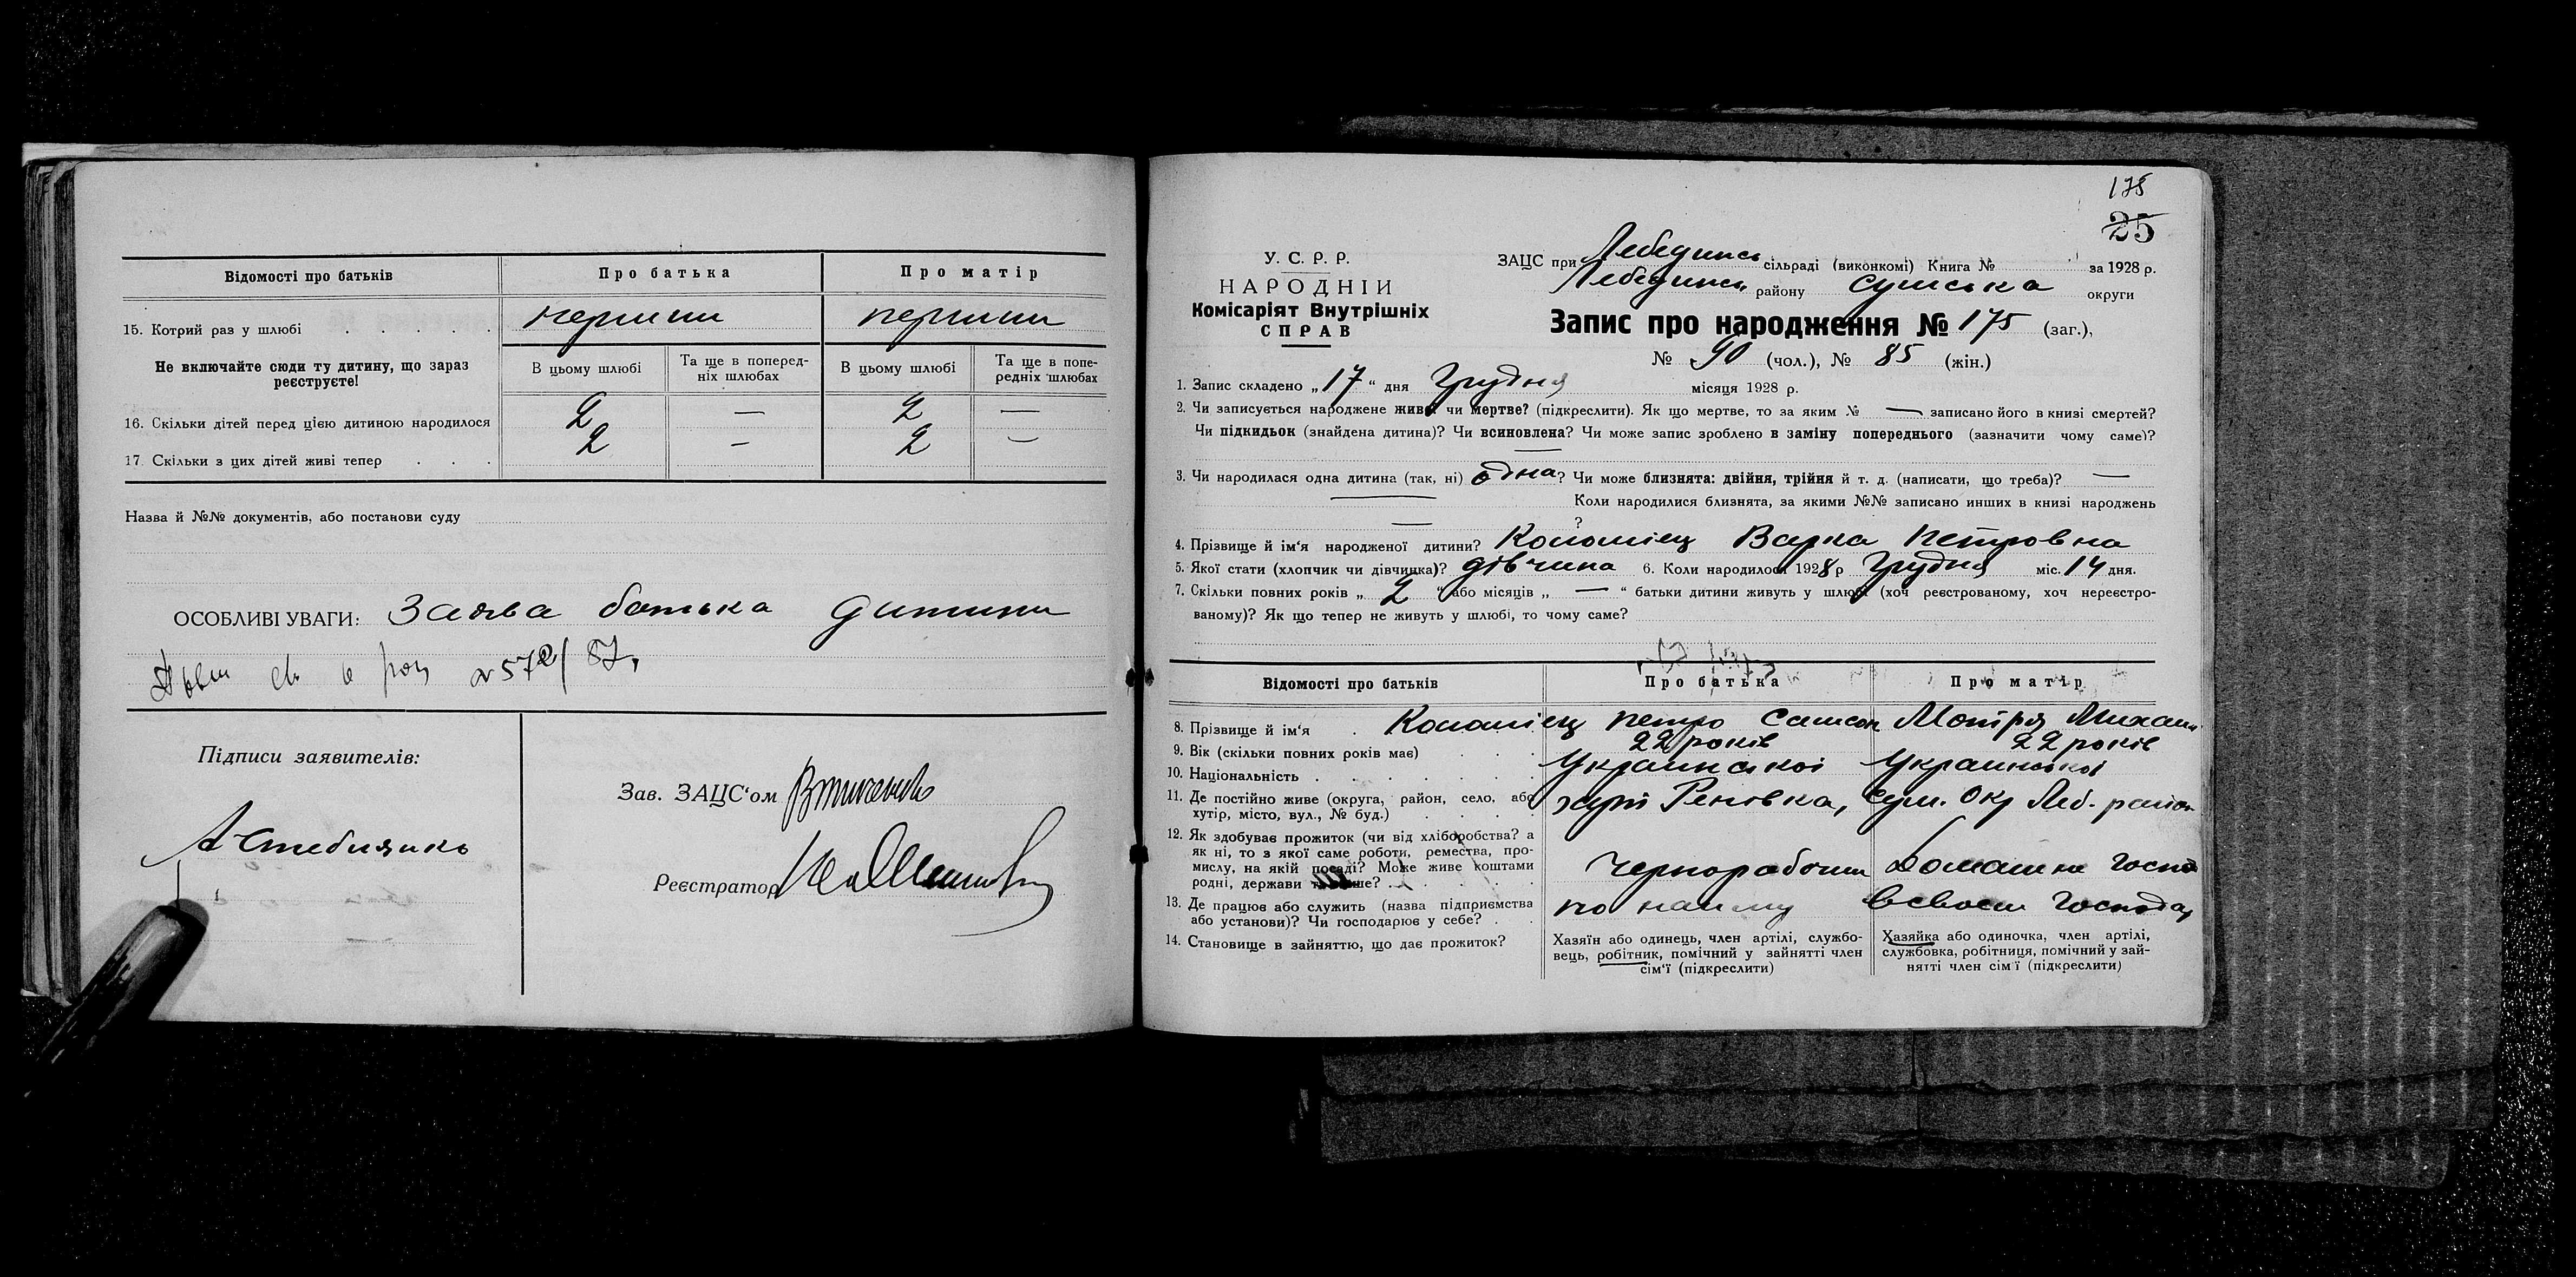 Відомості про батьків
Про батька
Про матір
15. Котрий раз у шлюбі
перший
перший
Не включайте сюди ту дитину, що зараз реєструєте!
В цьому шлюбі
Та ще в поперед-
ніх шлюбах
В цьому шлюбі
Та ще в попе-
редніх шлюбах
16. Скільки дітей перед цією дитиною народилося
2 — 2 —
17. Скільки з цих дітей живі тепер
2 — 2 —
Назва й №№ документів, або постанови суду
ОСОБЛИВІ УВАГИ: Заява батька дитини
Підписи заявителів:
Зав. ЗАЦС'ом
Реєстратор
175
25
У. С. Р. Р.
НАРОДНІЙ
Комісаріят Внутрішніх
СПРАВ
ЗАЦС при Лебединсь сільраді (виконкомі) Книга № за 1928 р.
Лебединсь району Сумська округи
Запис про народження № 175 (заг.),
№ 90 (чол.), № 85 (жін.)
1. Запис складено „17“ дня Грудня місяця 1928 р.
2. Чи записується народжене живе чи мертве? (підкреслити). Як що мертве, то за яким № — записано його в книзі смертей?
Чи підкидьок (знайдена дитина)? Чи всиновлена? Чи може запис зроблено в заміну попереднього (зазначити чому саме)?
—
3. Чи народилася одна дитина (так, ні) одна? Чи може близнята: двійня, трійня й т. д. (написати, що треба)? —
Коли народилися близнята, за якими №№ записано инших в книзі народжень
— ?
4. Прізвище й ім'я народженої дитини? Коломієц Варка Петровна
5. Якої стати (хлопчик чи дівчинка)? дівчина 6. Коли народилося 1928 р Грудня міс. 14 дня.
7. Скільки повних років „ 2 “ або місяців „ — “ батьки дитини живуть у шлюбі (хоч реєстрованому, хоч нереєстро-
ваному)? Як що тепер не живуть у шлюбі, то чому саме?
Відомості про батьків
Про батька
Про матір
8. Прізвище й ім'я . Коломієц Петро Самсон Мотря Михаил
9. Вік (скільки повних років має)
22 років
22 років
10. Національність
Украинської
Украинської
11. Де постійно живе (округа, район, село, або
хутір, місто, вул., № буд.)
хутр Реновка, Сум. Окр Леб. район
12. Як здобуває прожиток (чи від хліборобства? а
як ні, то з якої саме роботи, ремества, про-
мислу, на якій посаді? Може живе коштами
родні, держави
Чернорабочии
Домашне Госпо
13. Де працює або служить (назва підприємства
або установи)? Чи господарює у себе?
по найму
всвоем Господар
14. Становище в зайняттю, що дає прожиток?
Хазяїн або одинець, член артілі, службо-
вець, робітник, помічний у зайнятті член
сім'ї (підкреслити)
Хазяйка або одиночка, член артілі,
службовка, робітниця, помічний у зай-
нятті член сім'ї (підкреслити)